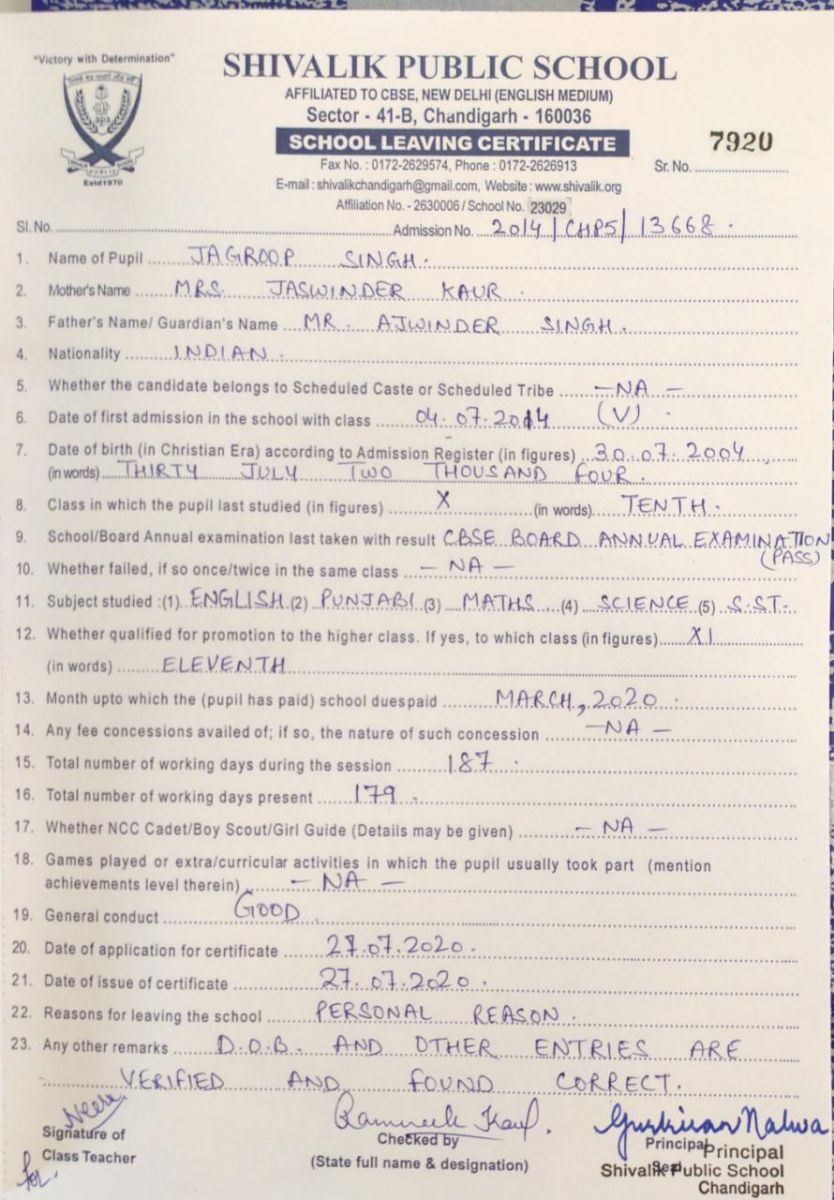 "Victory with Determination"
SHIVALIK PUBLIC SCHOOL
AFFILIATED TO CBSE, NEW DELHI (ENGLISH MEDIUM)
Sector - 41-B, Chandigarh - 160036
SCHOOL LEAVING CERTIFICATE
7920
Estd1970
Fax No. : 0172-2629574, Phone : 0172-2626913
Sr. No.
E-mail : shivalikchandigarh@gmail.com, Website : www.shivalik.org
Affiliation No. - 2630006 / School No. 23029
Sl. No. Admission No. 2014/CHPS/13668.
1. Name of Pupil JAGROOP SINGH.
2. Mother's Name MRS. JASWINDER KAUR.
3. Father's Name/ Guardian's Name MR. AJWINDER SINGH.
4. Nationality INDIAN.
5. Whether the candidate belongs to Scheduled Caste or Scheduled Tribe —NA—
6. Date of first admission in the school with class 04.07.2014 (V).
7. Date of birth (in Christian Era) according to Admission Register (in figures) 30.07.2004,
(in words) THIRTY JULY TWO THOUSAND FOUR.
8. Class in which the pupil last studied (in figures) X (in words) TENTH.
9. School/Board Annual examination last taken with result CBSE BOARD ANNUAL EXAMINATION
(PASS)
10. Whether failed, if so once/twice in the same class —NA—
11. Subject studied :(1) ENGLISH (2) PUNJABI (3) MATHS (4) SCIENCE (5) S.ST.
12. Whether qualified for promotion to the higher class. If yes, to which class (in figures) XI
(in words) ELEVENTH
13. Month upto which the (pupil has paid) school duespaid MARCH, 2020.
14. Any fee concessions availed of; if so, the nature of such concession —NA—
15. Total number of working days during the session 187.
16. Total number of working days present 179.
17. Whether NCC Cadet/Boy Scout/Girl Guide (Details may be given) —NA—
18. Games played or extra/curricular activities in which the pupil usually took part (mention
achievements level therein) —NA—
19. General conduct GOOD.
20. Date of application for certificate 27.07.2020.
21. Date of issue of certificate 27.07.2020.
22. Reasons for leaving the school PERSONAL REASON.
23. Any other remarks D.O.B. AND OTHER ENTRIES ARE
VERIFIED AND FOUND CORRECT.
Signature of
Class Teacher
for.
Checked by
(State full name & designation)
Principal
Principal
Shivalik Public School
Chandigarh